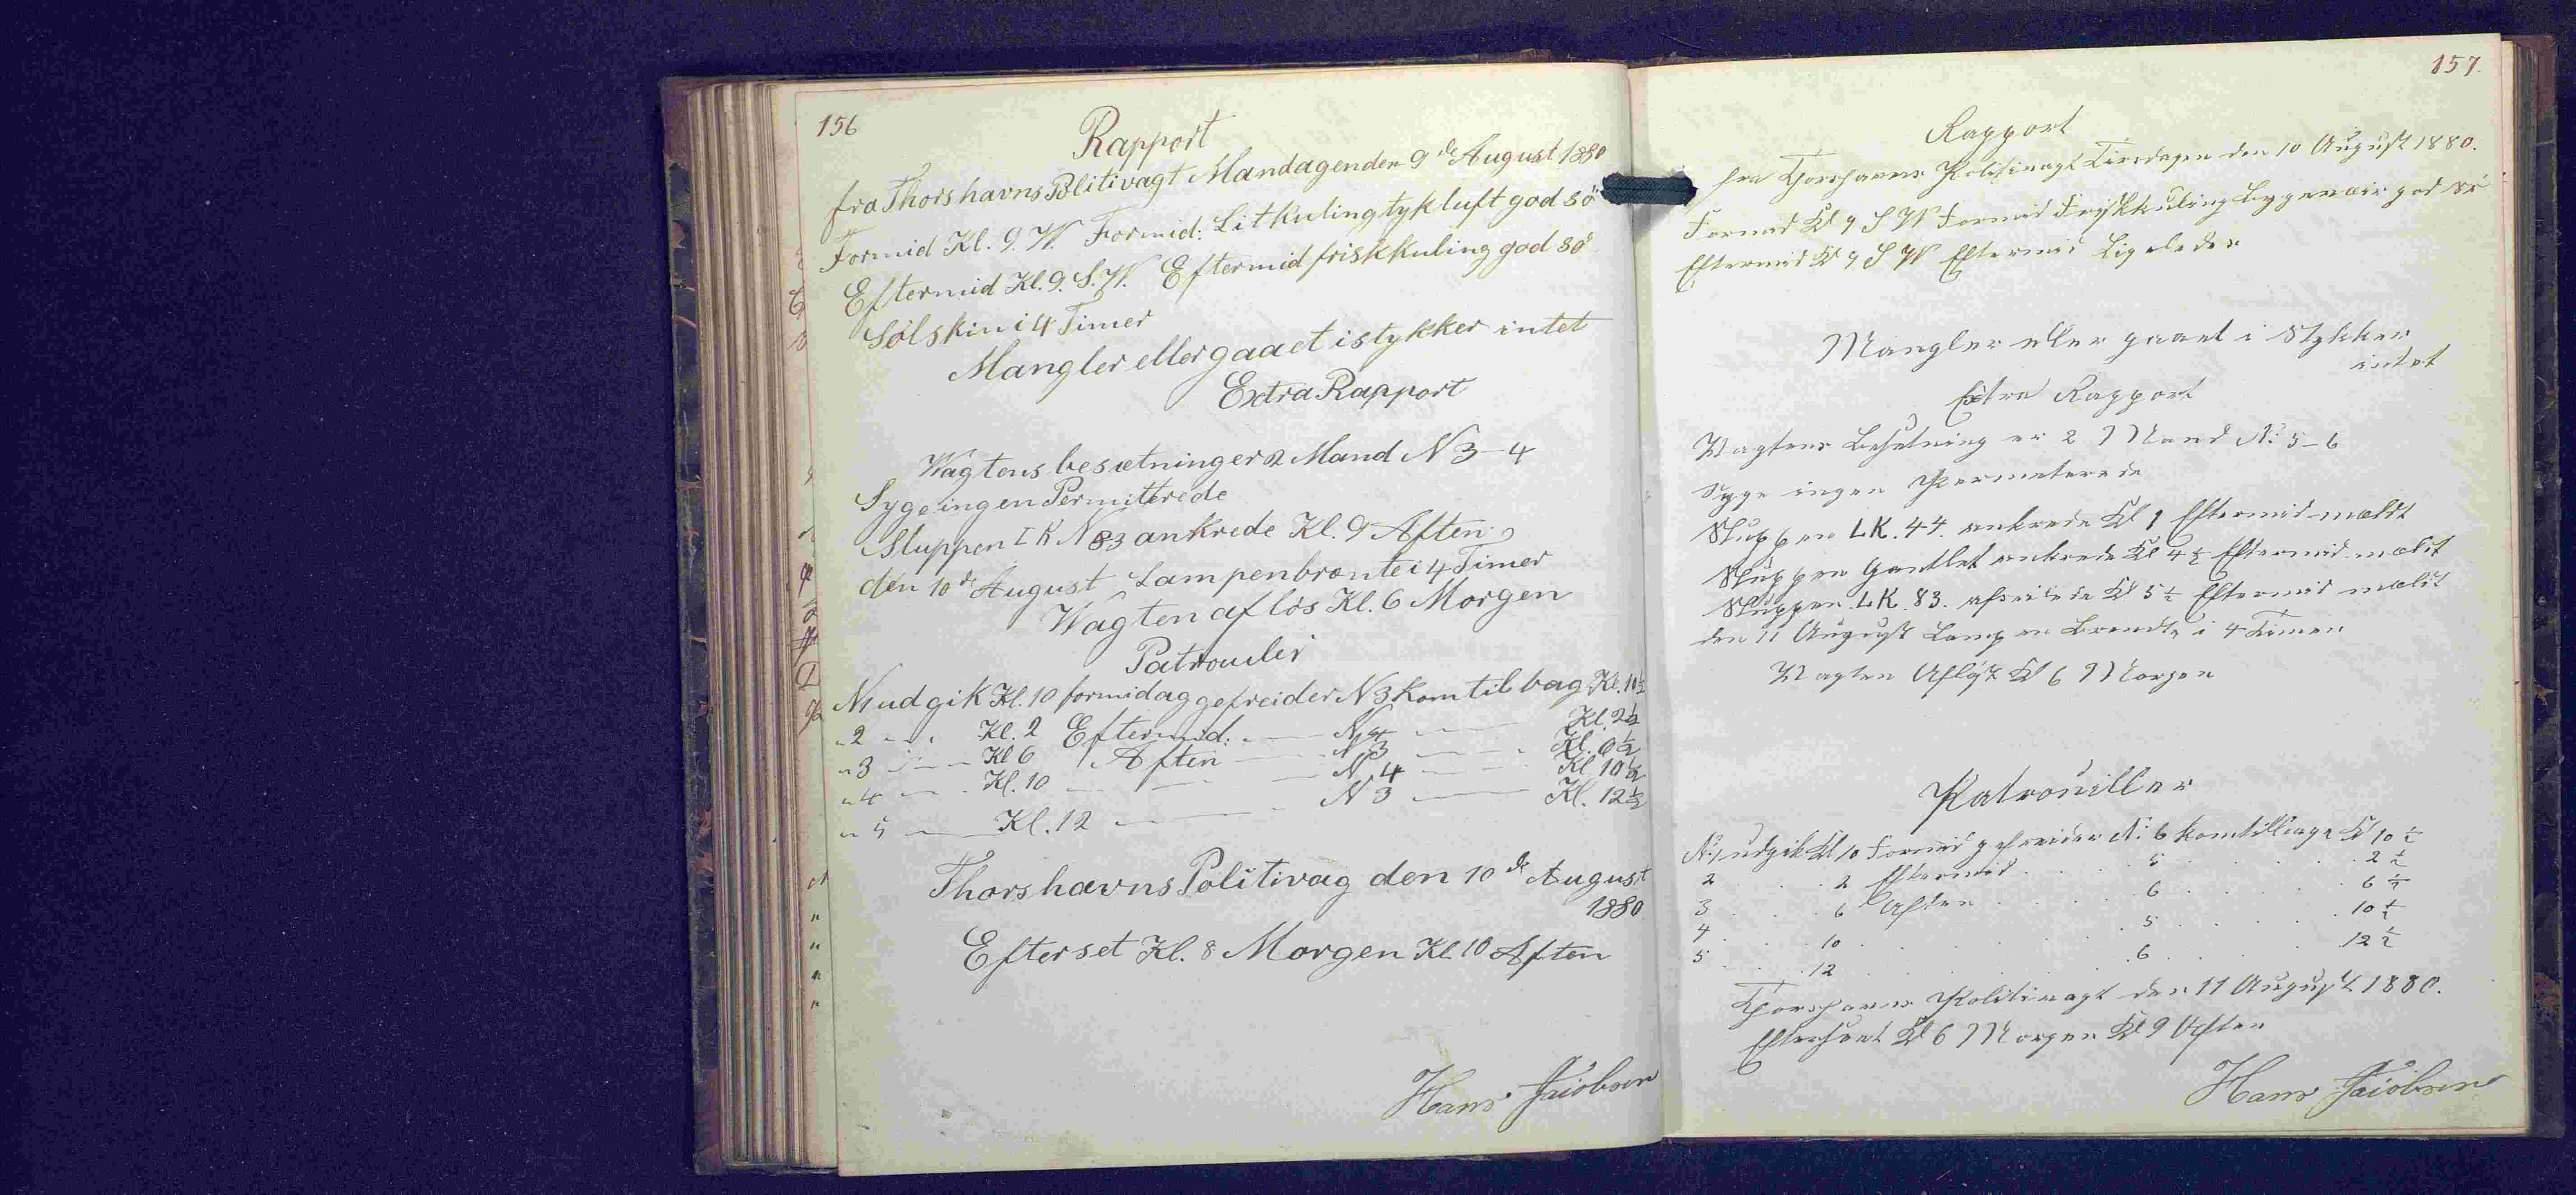 156
Rapport
fra Thorshavns Politivagt Mandagen den 9de August 1880
Formid Kl. 9. W. Formid: Litkuling tykluft god sö
Eftermid Kl. 9. S.W. Eftermid friskkuling god sö
Sølskin i 4 Timer
Mangler eller gaaet istykker intet
Extra Rapport
Wagtens besætning er 2 Mand N 3-4
Syge ingen Permitterede
Sluppen LK N 83 ankrede Kl. 9 Aften
den 10de August Lampen brænte i 4 Timer
Wagten aflös Kl. 6 Morgen
Patrouiler
N1 udgik Kl. 10 formidag gefreider N 3 kom tilbag Kl. 10½
" 2 Kl. 2 Eftermid: N 4 Kl. 2½
" 3 Kl 6 Aften N 3 Kl. 6½
" 4 Kl. 10 N 4 Kl 10½
" 5 Kl. 12 N 3 Kl. 12½
Thorshavns Politivag den 10de August
1880
Efterset Kl. 8 Morgen Kl 10 Aften
Hans Jacobsen
157.
Rapport
fra Thorshavns Politivagt Tirsdagen den 10 August 1880.
Formid Kl 9 S W Formid Friskkuling Bygeveir god sö
Eftermid Kl 9 S W Eftermid Ligeledes
Mangler eller gaaet i Stykker
intet
Extra Rapport
Wagtens Besetning er 2 Mand N: 5-6
Syge ingen Permeterede
Sluppen LK. 44. ankrede Kl 1 Eftermid mældt
Sluppen Gantlet ankrede Kl 4½ Eftermid mældt
Sluppen LK. 83. afseilede Kl 5½ Eftermid mældt
den 11 August Lampen Brendte i 4 Timer
Wagten Afløst Kl 6 Morgen
Patrouiller
N:1 udgik Kl 10 Formid gefreider N: 6 kom tilbage Kl 10½
2 . . . 2 Eftermid . . . 5 . . . 2½
3 . . . 6 Aften . . . 6 . . . 6½
4 . . . 10 . . . 5 . . . 10½
5 . . . 12 . . . 6 . . . 12½
Thorshavns Politivagt den 11 August 1880.
Efterseet Kl 6 Morgen Kl 9 Aften
Hans Jacobsen